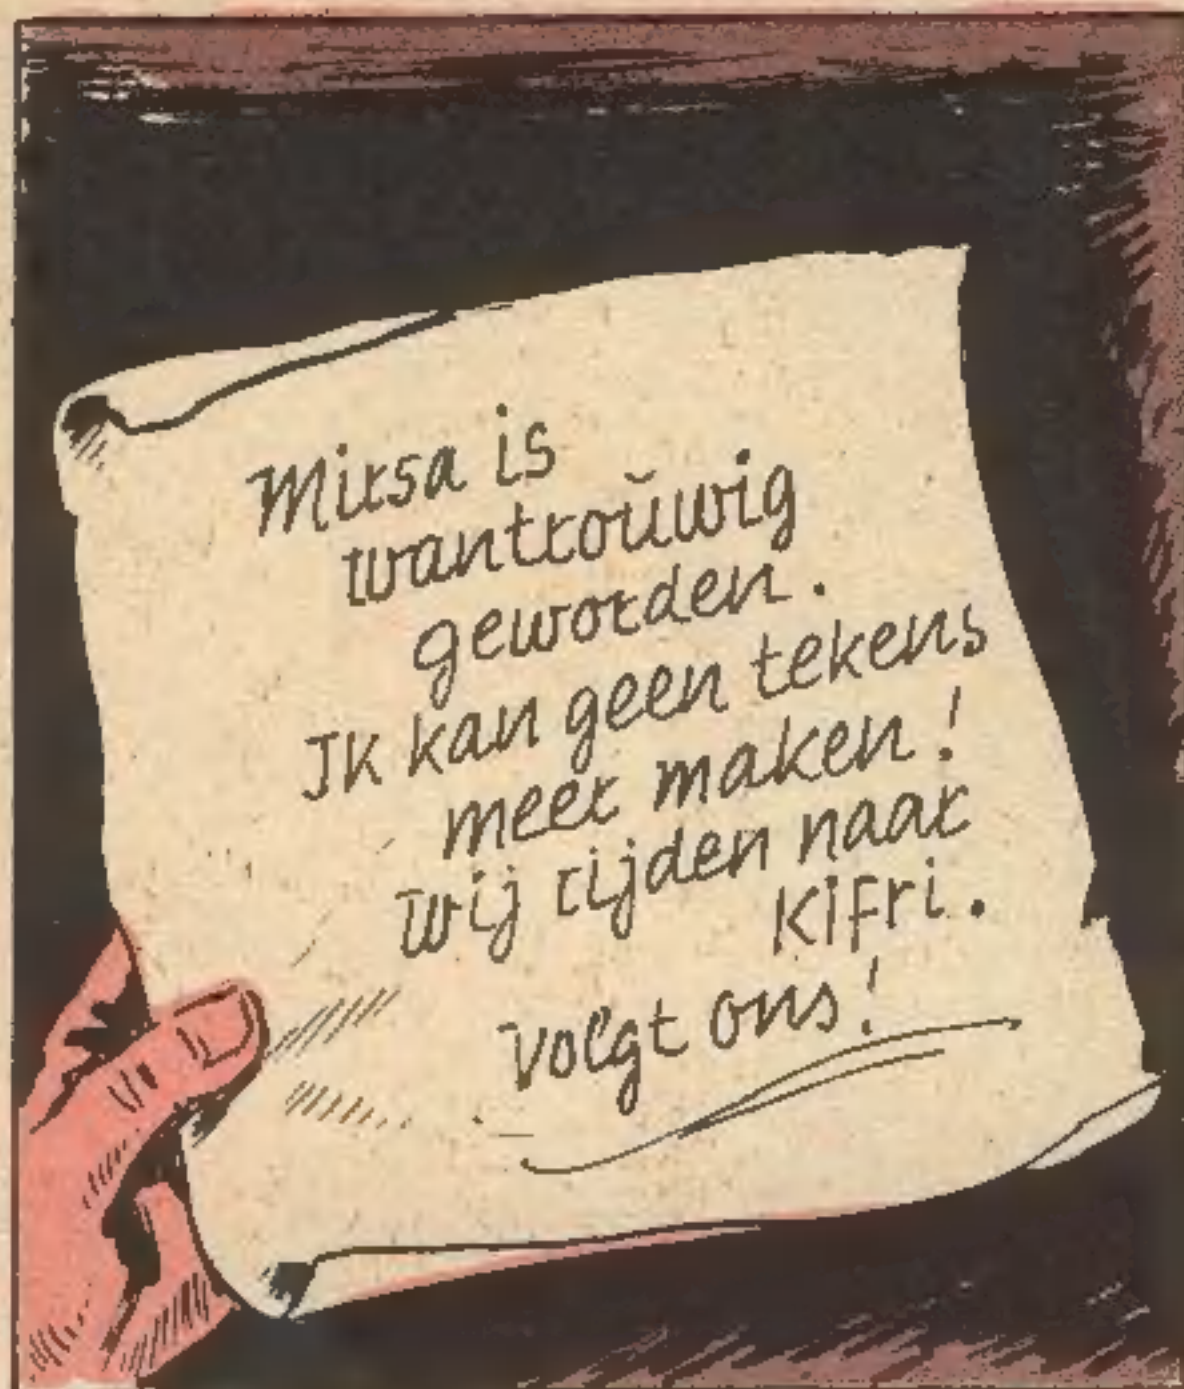 Mirsa is
wantroŭwig
geworden.
IK kan geen tekens
meer maken!
Wij rijden naar
Kifri.
Volgt ons!